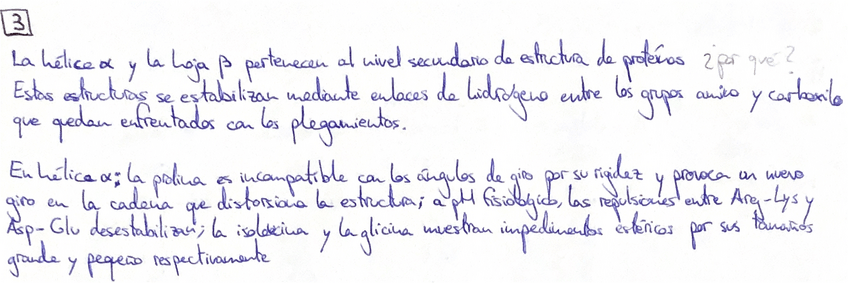 3
La hélice α y la hoja β pertenecen al nivel secundario de estructura de proteínas ¿por qué?
Estas estructuras se estabilizan mediante enlaces de hidrógeno entre los grupos amino y carboxilo
que quedan enfrentados con los plegamientos.
En hélice α: la prolina es incompatible con los ángulos de giro por su rigidez y provoca un nuevo
giro en la cadena que distorsiona la estructura; a pH fisiológico, las repulsiones entre Arg-Lys y
Asp-Glu desestabilizan; la isoleucina y la glicina muestran impedimentos estéricos por sus tamaños
grande y pequeño respectivamente